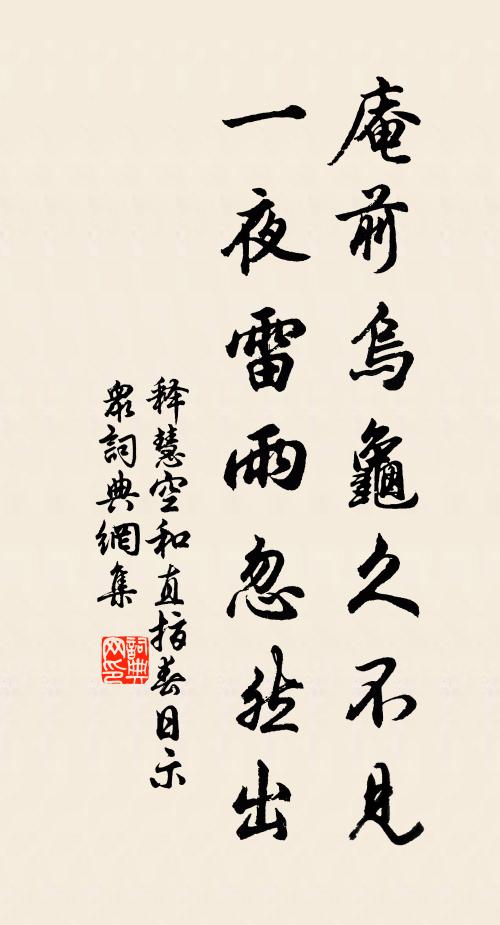 庵前烏龜久不見
一夜雷雨忽然出
释慧空和直指春日示
眾詞典網集
詞典
网印